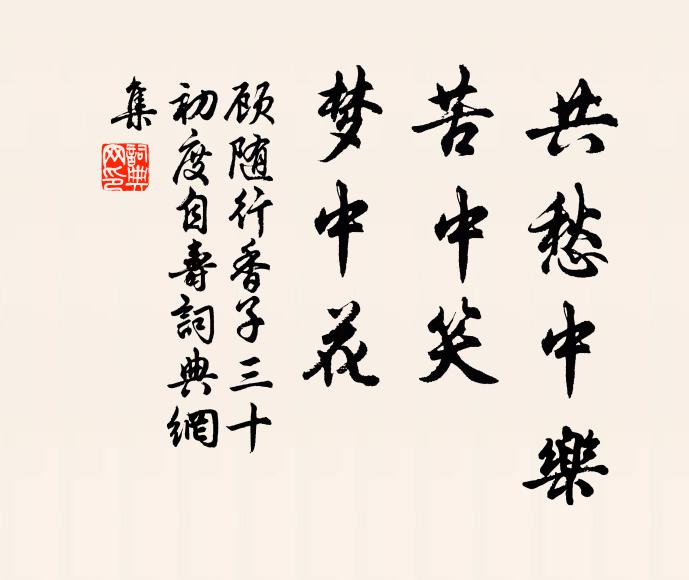 共愁中樂
苦中笑
梦中花
顾随行香子三十
初度自壽詞典網
集
詞典
网印